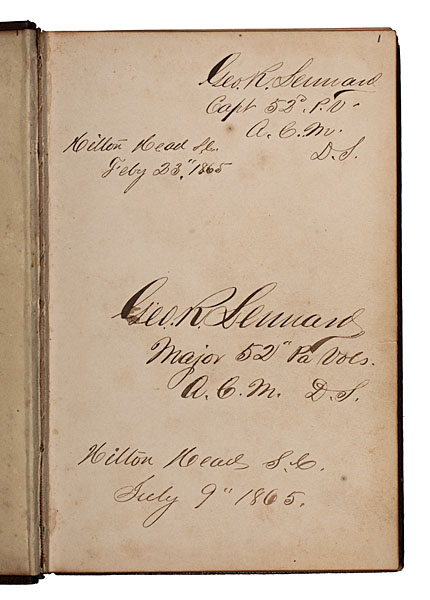 1
Geo. R. Lennard
Capt 52d. P. V.
A. C. M.
D. S.
Hilton Head S.C.
Feby 23", 1865
Geo. R. Lennard
Major 52" Pa Vols.
A. C. M. D. S.
Hilton Head S. C.
July 9" 1865.